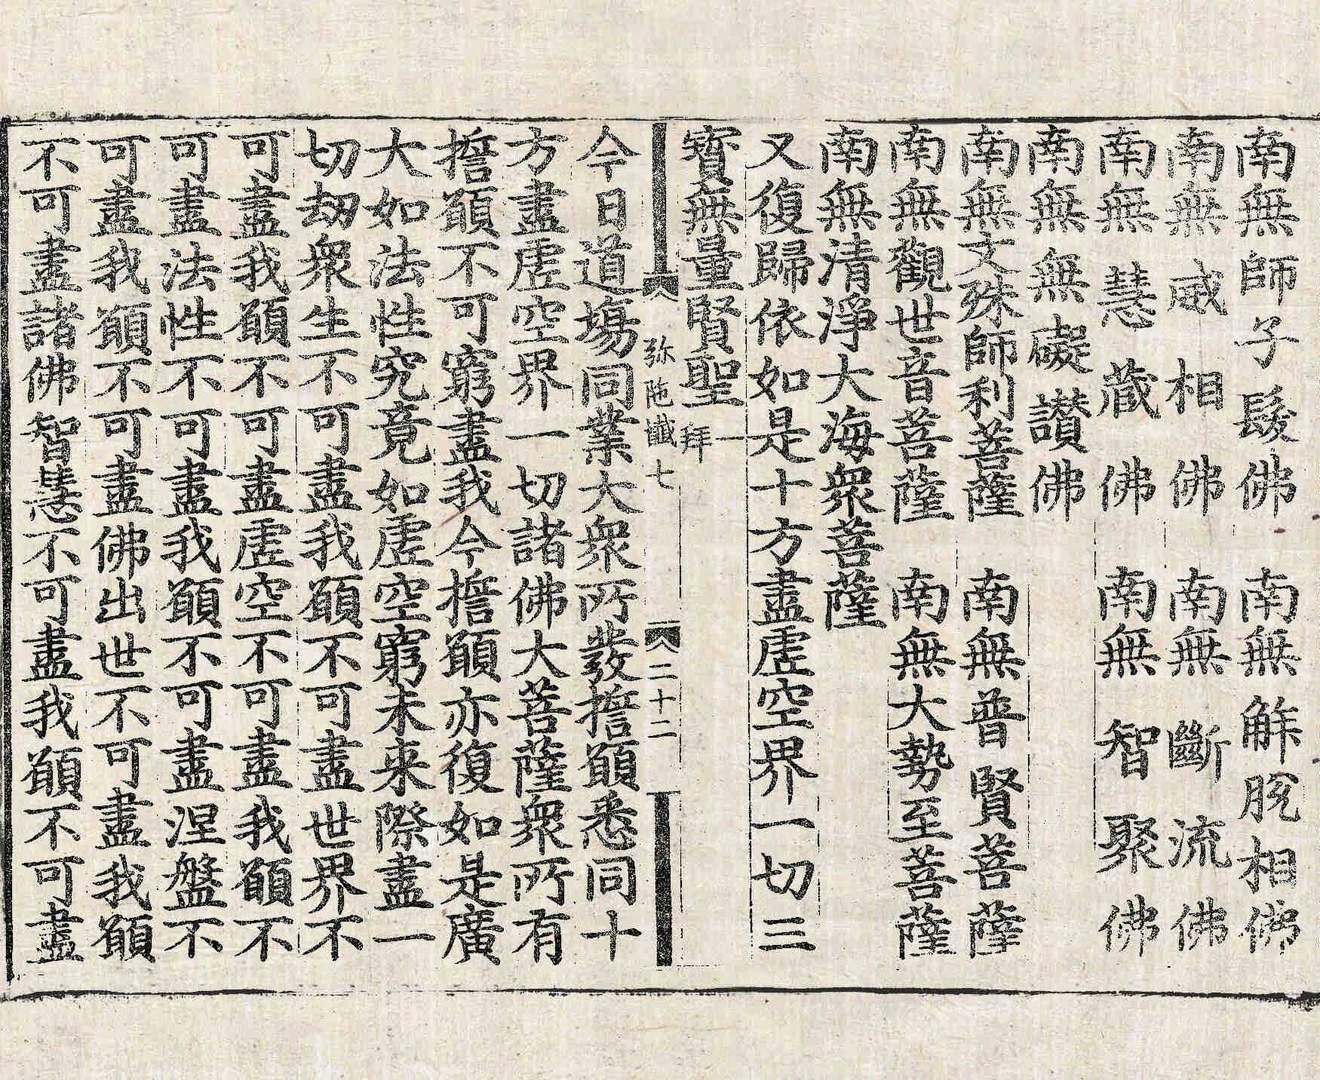 南無師子髮佛　南無解脫相佛
南無威相佛　南無斷流佛
南無慧藏佛　南無智聚佛
南無無礙讃佛
南無文殊師利菩薩　南無普賢菩薩
南無觀世音菩薩　南無大勢至菩薩
南無清淨大海衆菩薩
又復歸依如是十方盡虛空界一切三
寳無量賢聖 一拜
弥陁懺七　二十二
今日道場同業大衆所發擔願悉同十
方盡虛空界一切諸佛大菩薩衆所有
擔願不可窮盡我今擔願亦復如是廣
大如法性究竟如虛空窮未來際盡一
切劫衆生不可盡我願不可盡世界不
可盡我願不可盡虛空不可盡我願不
可盡法性不可盡我願不可盡涅盤不
可盡我願不可盡佛出世不可盡我願
不可盡諸佛智慧不可盡我願不可盡